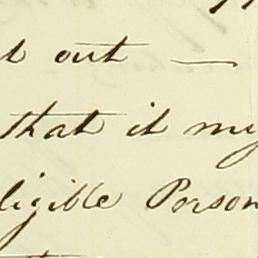 out —
that it
ligible Person